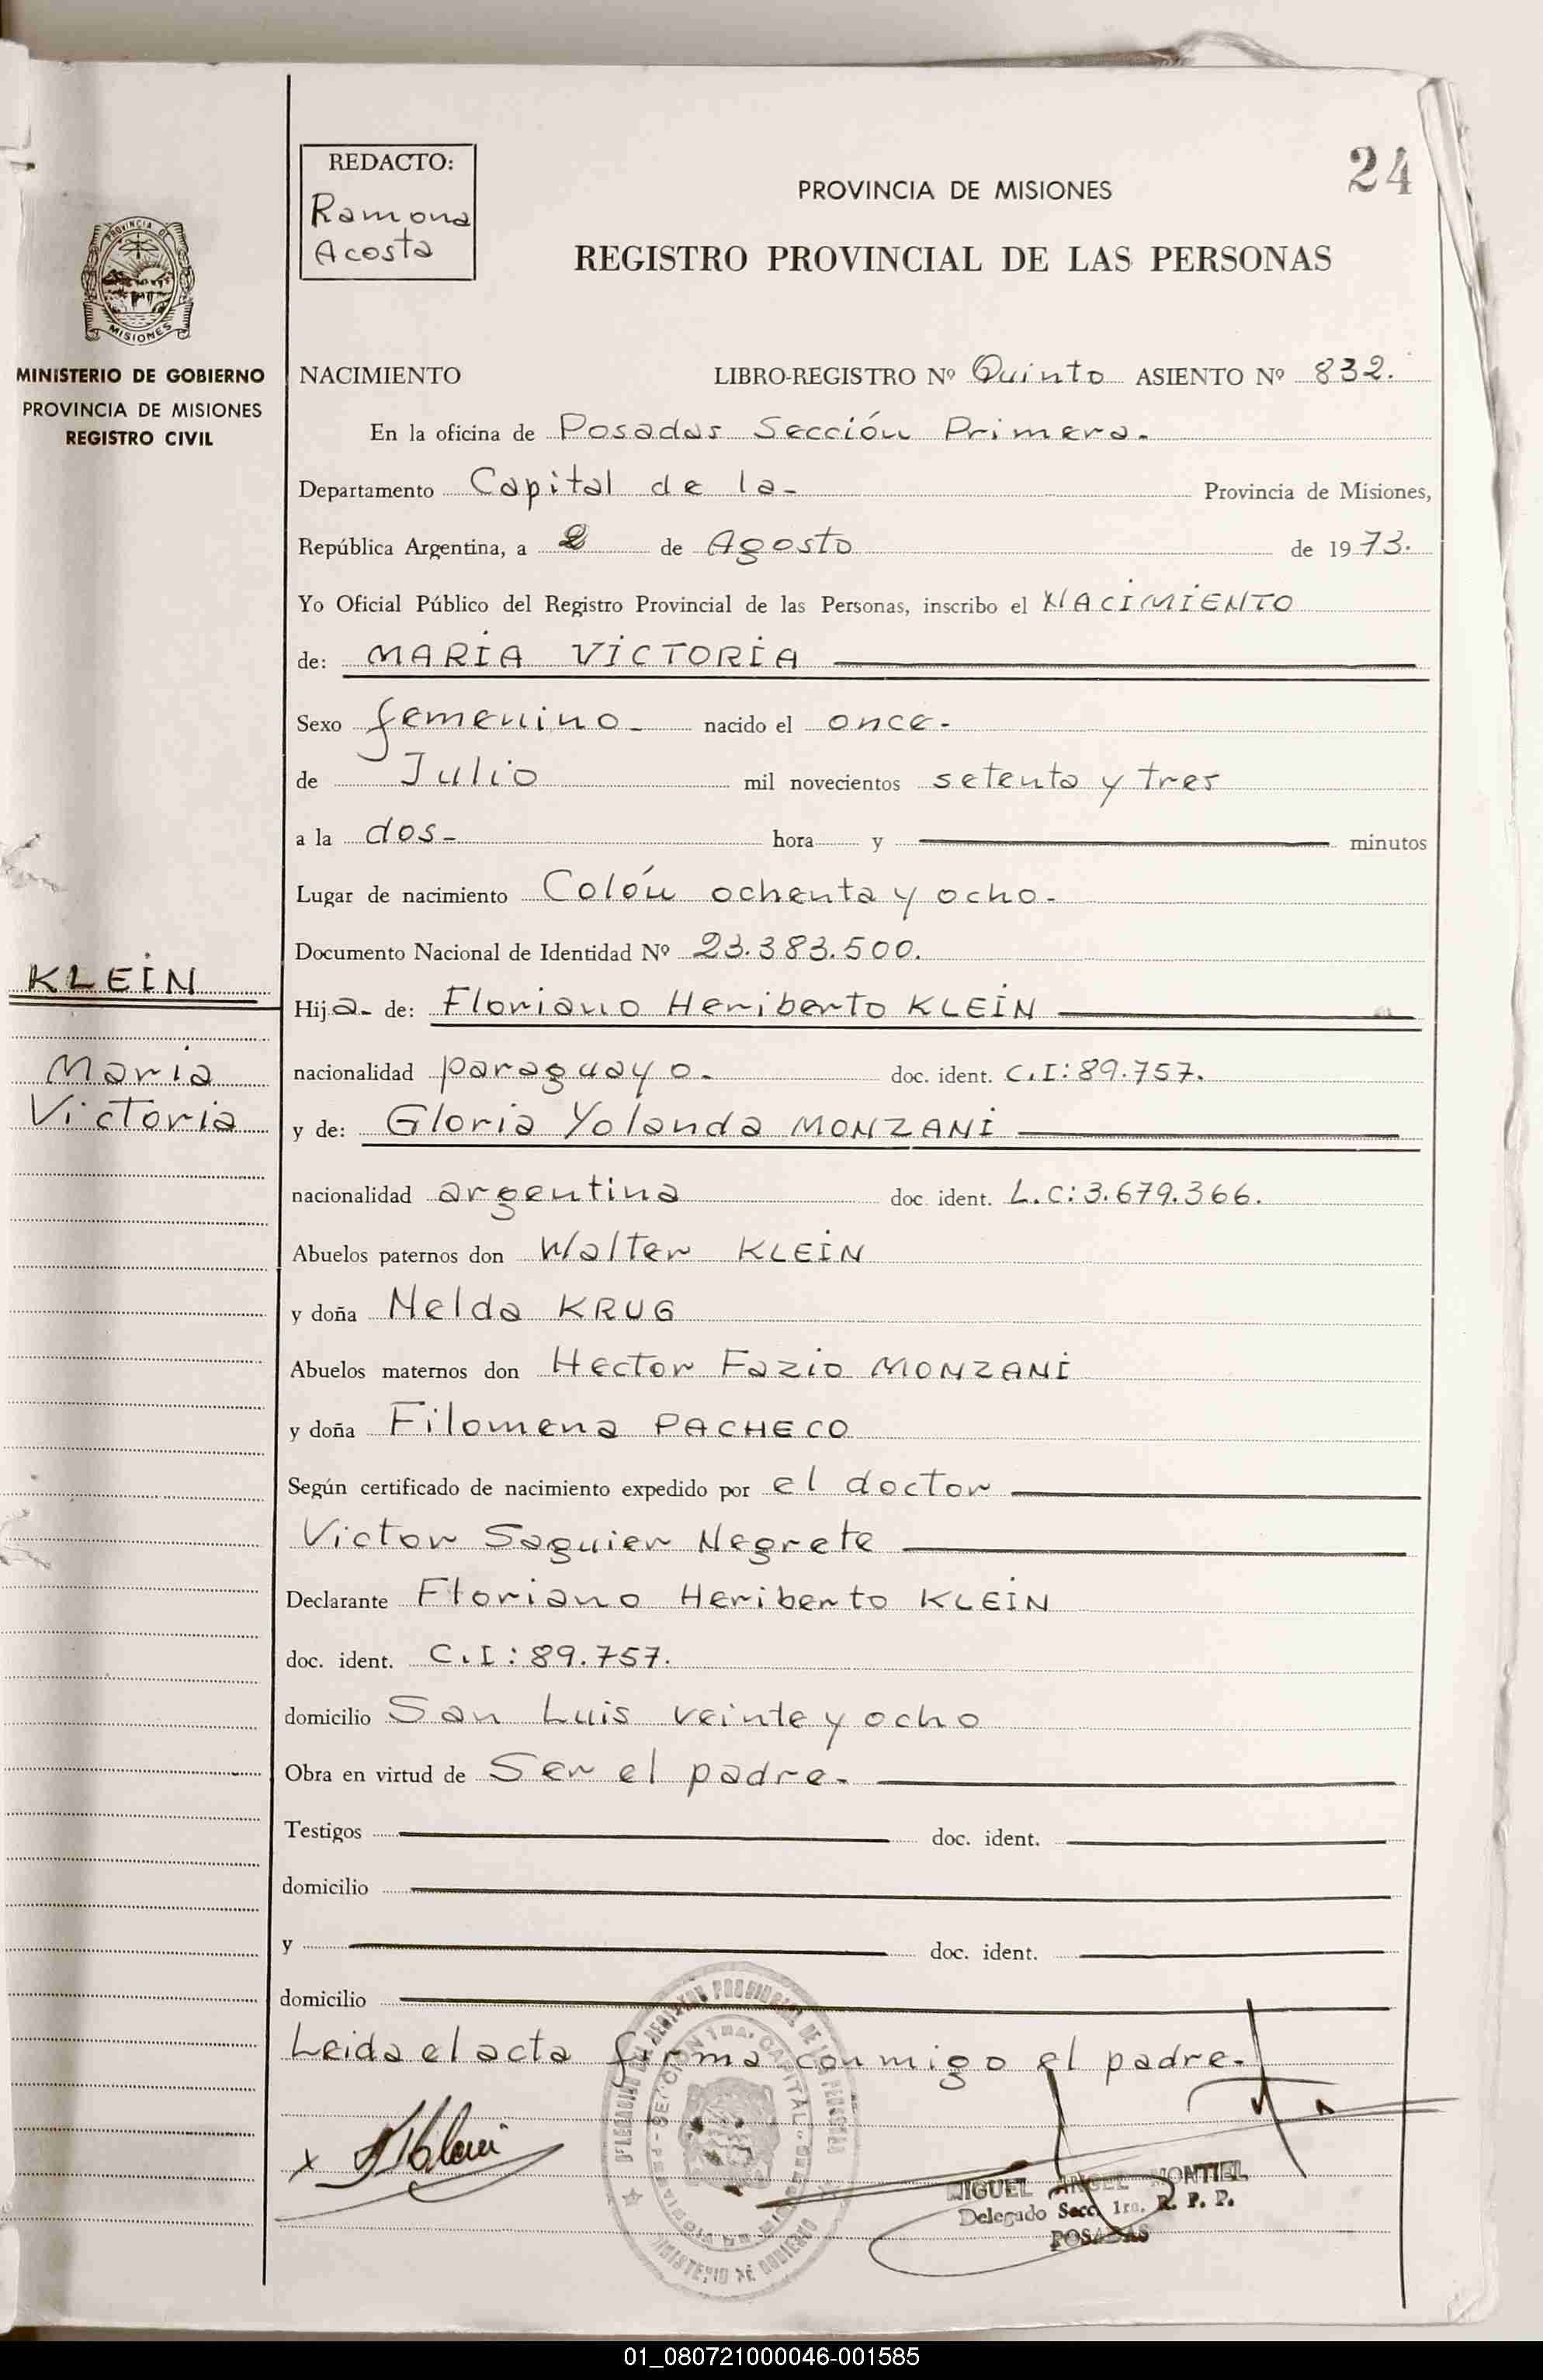 24
REDACTO:
Ramona
Acosta
PROVINCIA DE MISIONES
REGISTRO PROVINCIAL DE LAS PERSONAS
PROVINCIA DE
MISIONES
MINISTERIO DE GOBIERNO
PROVINCIA DE MISIONES
REGISTRO CIVIL
NACIMIENTO LIBRO-REGISTRO Nº Quinto ASIENTO Nº 832.
En la oficina de Posadas Sección Primera.
Departamento Capital de la- Provincia de Misiones,
República Argentina, a 2 de Agosto de 1973.
Yo Oficial Público del Registro Provincial de las Personas, inscribo el NACIMIENTO
de: MARIA VICTORIA
Sexo femenino- nacido el once-
de Julio mil novecientos setenta y tres
a la dos- hora y minutos
Lugar de nacimiento Colón ochenta y ocho-
Documento Nacional de Identidad Nº 23.383.500.
KLEIN
Hija- de: Floriano Heriberto KLEIN
Maria
Victoria
nacionalidad paraguayo- doc. ident. C.I: 89.757.
y de: Gloria Yolanda MONZANI
nacionalidad argentina doc. ident. L.C: 3.679.366.
Abuelos paternos don Walter KLEIN
y doña Nelda KRUG
Abuelos maternos don Hector Fazio MONZANI
y doña Filomena PACHECO
Según certificado de nacimiento expedido por el doctor
Victor Saguier Negrete
Declarante Floriano Heriberto KLEIN
doc. ident. C.I: 89.757.
domicilio San Luis veinte y ocho
Obra en virtud de Ser el padre-
Testigos doc. ident.
domicilio
y doc. ident.
domicilio
Leida el acta firma conmigo el padre-
x
MIGUEL ANGEL MONTIEL
Delegado Secc. 1ra. R. P. P.
POSADAS
01_080721000046-001585